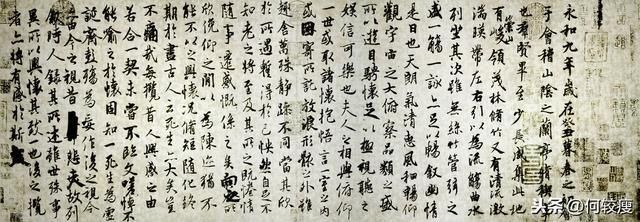 永和九年歲在癸丑暮春之初會
于會稽山陰之蘭亭脩稧事
也群賢畢至少長咸集此地
有崇山峻領茂林脩竹又有清流激
湍暎帶左右引以為流觴曲水
列坐其次雖無絲竹管弦之
盛一觴一詠亦足以暢敘幽情
是日也天朗氣清惠風和暢仰
觀宇宙之大俯察品類之盛
所以遊目騁懷足以極視聽之
娛信可樂也夫人之相與俯仰
一世或取諸懷抱悟言一室之內
或因寄所託放浪形骸之外雖
趣舍萬殊靜躁不同當其欣
於所遇蹔得於己怏然自足不
知老之將至及其所之既惓情
隨事遷感慨係之矣向之所
欣俛仰之閒以為陳迹猶不
能不以之興懷況脩短隨化終
期於盡古人云死生亦大矣豈
不痛哉每攬昔人興感之由
若合一契未嘗不臨文嗟悼不
能喻之於懷固知一死生為虛
誕齊彭殤為妄作後之視今
亦由今之視昔悲夫故列
敘時人錄其所述雖世殊事
異所以興懷其致一也後之攬
者亦將有感於斯文
头条 @何較瘦